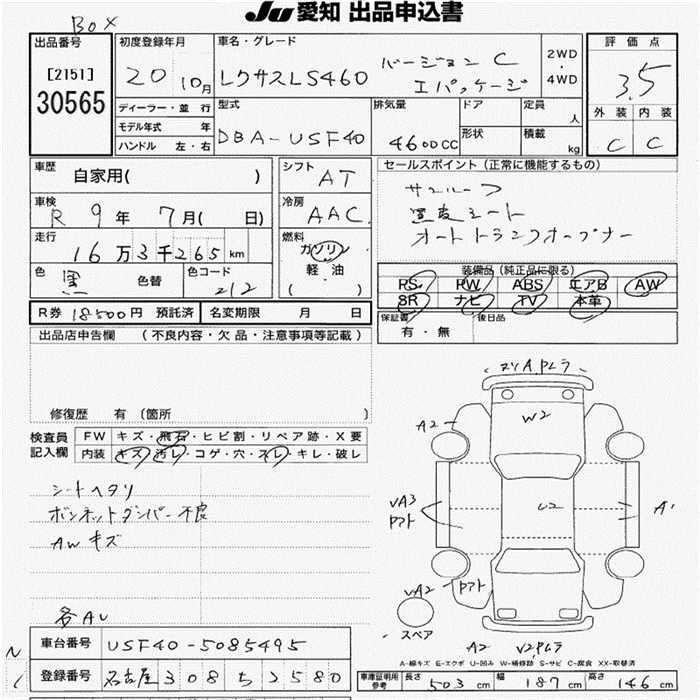 Ju 愛知 出品申込書
BOX
出品番号
[2151]
30565
初度登録年月
20 10月
車名・グレード
レクサスLS460
バージョンC
エアパッケージ
2WD
・
4WD
評価点
3.5
外装 内装
C C
ディーラー・並 行
モデル年式 年
ハンドル 左・右
型式
DBA-USF40
排気量
4600CC
ドア
形状
定員 人
積載 kg
車歴
自家用( )
シフト
AT
車検
R 9年 7月( 日)
冷房
AAC
走行
16万3千265km
燃料
ガソリン
軽油
( )
色
黒
色替
色コード
212
セールスポイント(正常に機能するもの)
サンルーフ
オートトランクオープナー
装備品(純正品に限る)
PS PW ABS エアB AW
SR ナビ TV 本革
R券 18500円 預託済
名変期限 月 日
保証書
有・無
後日品
出品店申告欄 (不良内容・欠品・注意事項等記載)
修復歴 有 〔箇所 〕
検査員
記入欄
FW キズ・飛石・ヒビ割・リペア跡・X要
内装 キズ・汚レ・コゲ・穴・スレ・キレ・破レ
シートヘタリ
ボンネットダンパー不良
AWキズ
各AU
A2
W2
VA3
U2
A1
VA2
スペア
A2
A-線キズ E-エクボ U-凹み W-補修跡 S-サビ C-腐食 XX-取替済
車台番号
USF40-5085495
登録番号
名古屋308ち2580
車庫証明用
参考
長さ 503cm
幅 187cm
高さ 146cm